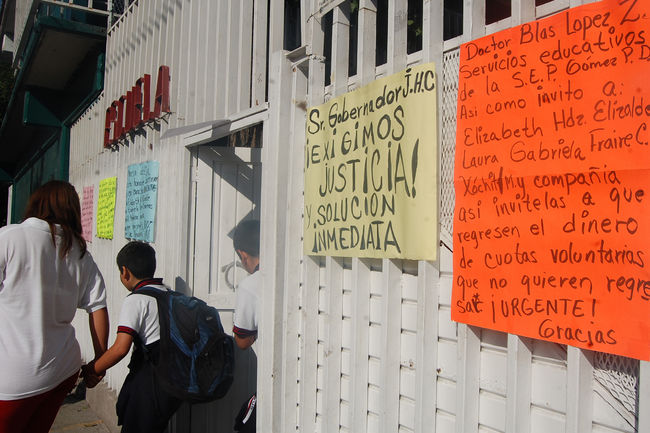 ESCUELA
Sr. Gobernador J.H.C
¡EXIGIMOS
JUSTICIA!
Y SOLUCIÓN
INMEDIATA
Doctor Blas Lopez Z.
Servicios educativos
de la S.E.P Gómez P.D
Así como invito a:
Elizabeth Hdz. Elizalde
Laura Gabriela Fraire C.
y compañia
asi invitelas a que
regresen el dinero
de cuotas voluntarias
que no quieren regre
¡URGENTE!
Gracias